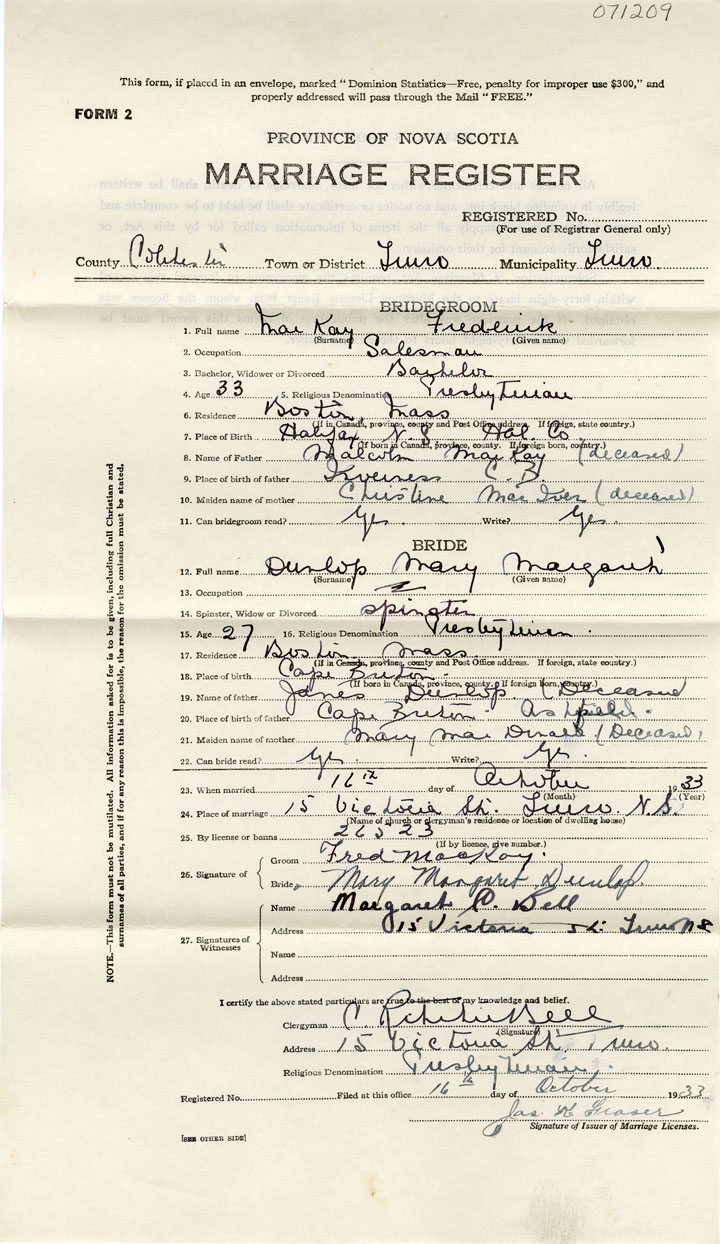 071209
This form, if placed in an envelope, marked "Dominion Statistics—Free, penalty for improper use $300," and
properly addressed will pass through the Mail "FREE."
FORM 2
PROVINCE OF NOVA SCOTIA
MARRIAGE REGISTER
REGISTERED No.
(For use of Registrar General only)
County Town or District Truro Municipality Truro
BRIDEGROOM
1. Full name MacKay Frederick
(Surname) (Given name)
2. Occupation Salesman
3. Bachelor, Widower or Divorced Bachelor
4. Age 33 5. Religious Denomination Presbyterian
6. Residence Boston, Mass
(If in Canada, province, county and Post Office address. If foreign, state country.)
7. Place of Birth Halifax N.S Hal. Co
(If born in Canada, province, county. If foreign born, country.)
8. Name of Father Malcolm MacKay (deceased)
9. Place of birth of father Inverness C.B.
10. Maiden name of mother Christine MacIver (deceased)
11. Can bridegroom read? Yes. Write? Yes.
BRIDE
12. Full name Dunlop Mary Margaret
(Surname) (Given name)
13. Occupation
14. Spinster, Widow or Divorced spinster
15. Age 27 16. Religious Denomination Presbyterian.
17. Residence Boston Mass.
(If in Canada, province, county and Post Office address. If foreign, state country.)
18. Place of birth Cape Breton.
(If born in Canada, province, county. If foreign born, country.)
19. Name of father James Dunlop. (Deceased
20. Place of birth of father Cape Breton.
21. Maiden name of mother Mary MacDonald (Deceased)
22. Can bride read? Yes. Write? Yes.
23. When married 16th day of October 1933
(Month) (Year)
24. Place of marriage 15 Victoria St. Truro. N.S.
(Name of church or clergyman's residence or location of dwelling house)
25. By license or banns 26523
(If by licence, give number.)
26. Signature of Groom Fred MacKay.
Bride Mary Margaret Dunlop.
27. Signatures of Witnesses
Name Margaret C. Bell
Address 15 Victoria St. Truro NS
Name
Address
NOTE.—This form must not be mutilated. All information asked for is to be given, including full Christian and
surnames of all parties, and if for any reason this is impossible, the reason for the omission must be stated.
I certify the above stated particulars are true to the best of my knowledge and belief.
Clergyman C. Ritchie Bell
(Signature)
Address 15 Victoria St. Truro.
Religious Denomination Presbyterian.
Registered No. Filed at this office 16th day of October 1933
Jas. Fraser
Signature of Issuer of Marriage Licenses.
[SEE OTHER SIDE]